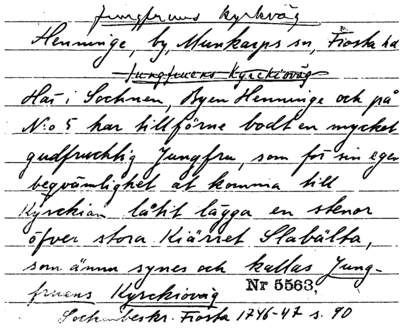 Jungfruns kyrkväg
Henninge, by, Munkarps sn, Frosta hd
Jungfruens Kyrckioväg
Har i Sochnen, Byen Henninge och på
N:o 5 har tillförne bodt en mycket
gudfruchtig Jungfru, som för sin egen
beqvämlighet at komma till
Kÿrckian låtit lägga en stenor
öfver stora Kiärret Slabälta,
som ännu synes och kallas Jung-
fruens Kyrckioväg
Nr 5563,
Sockenbeskr. Frosta 1746-47 s. 90